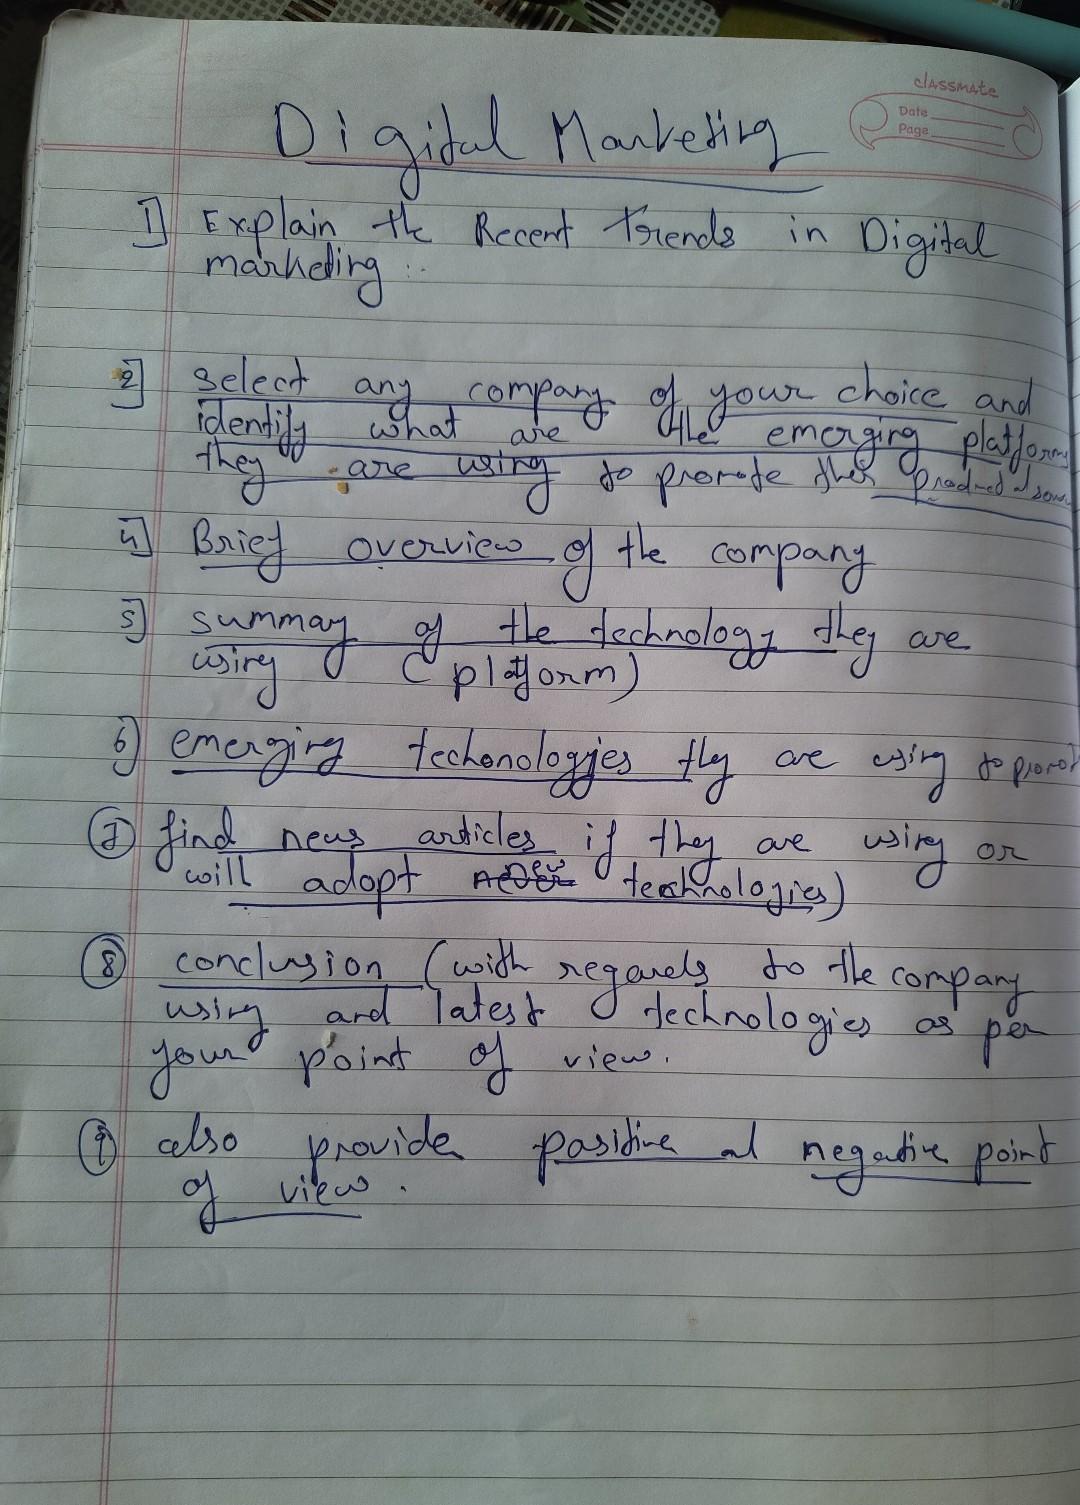 classmate
Date
Page
Digital Marketing
1] Explain the Recent Trends in Digital
marketing :-
2] select any company of your choice and
identify what are the emerging platforms
they are using to promote their product
4] Brief overview of the company
5] summay of the technology they are
using (platform)
6) emerging techonologyies they are using to promot
7 find news articles if they are using or
will adopt new technologies)
8 conclusion (with regards to the company
using and latest technologies as per
your point of view.
9 also provide positive and negative point
of view.